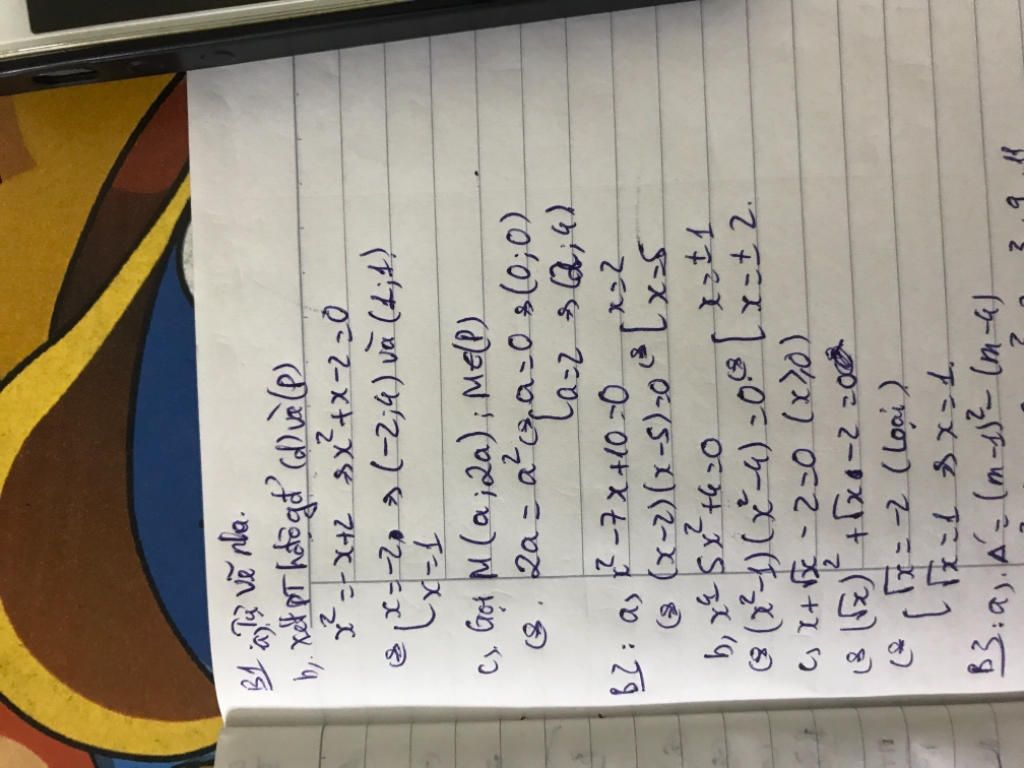 B1 a, Tự vẽ nha.
b, xét PT hđộgđ (d) và (P)
x² = -x+2 => x²+x-2=0
<=> [x=-2 => (-2;4) và (1;1)
x=1
c, Gọi M(a;2a); M∈(P)
<=> 2a = a² <=> [a=0 => (0;0)
a=2 => (2;4)
B2: a, x²-7x+10=0
<=> (x-2)(x-5)=0 <=> [x=2
x=5
b, x⁴-5x²+4=0
<=> (x²-1)(x²-4)=0 <=> [x=±1
x=±2.
c, x+√x-2=0 (x≥0)
<=> (√x)²+√x-2=0
<=> [√x=-2 (loại)
√x=1 => x=1.
B3: a, Δ'=(m-1)²-(m-4)